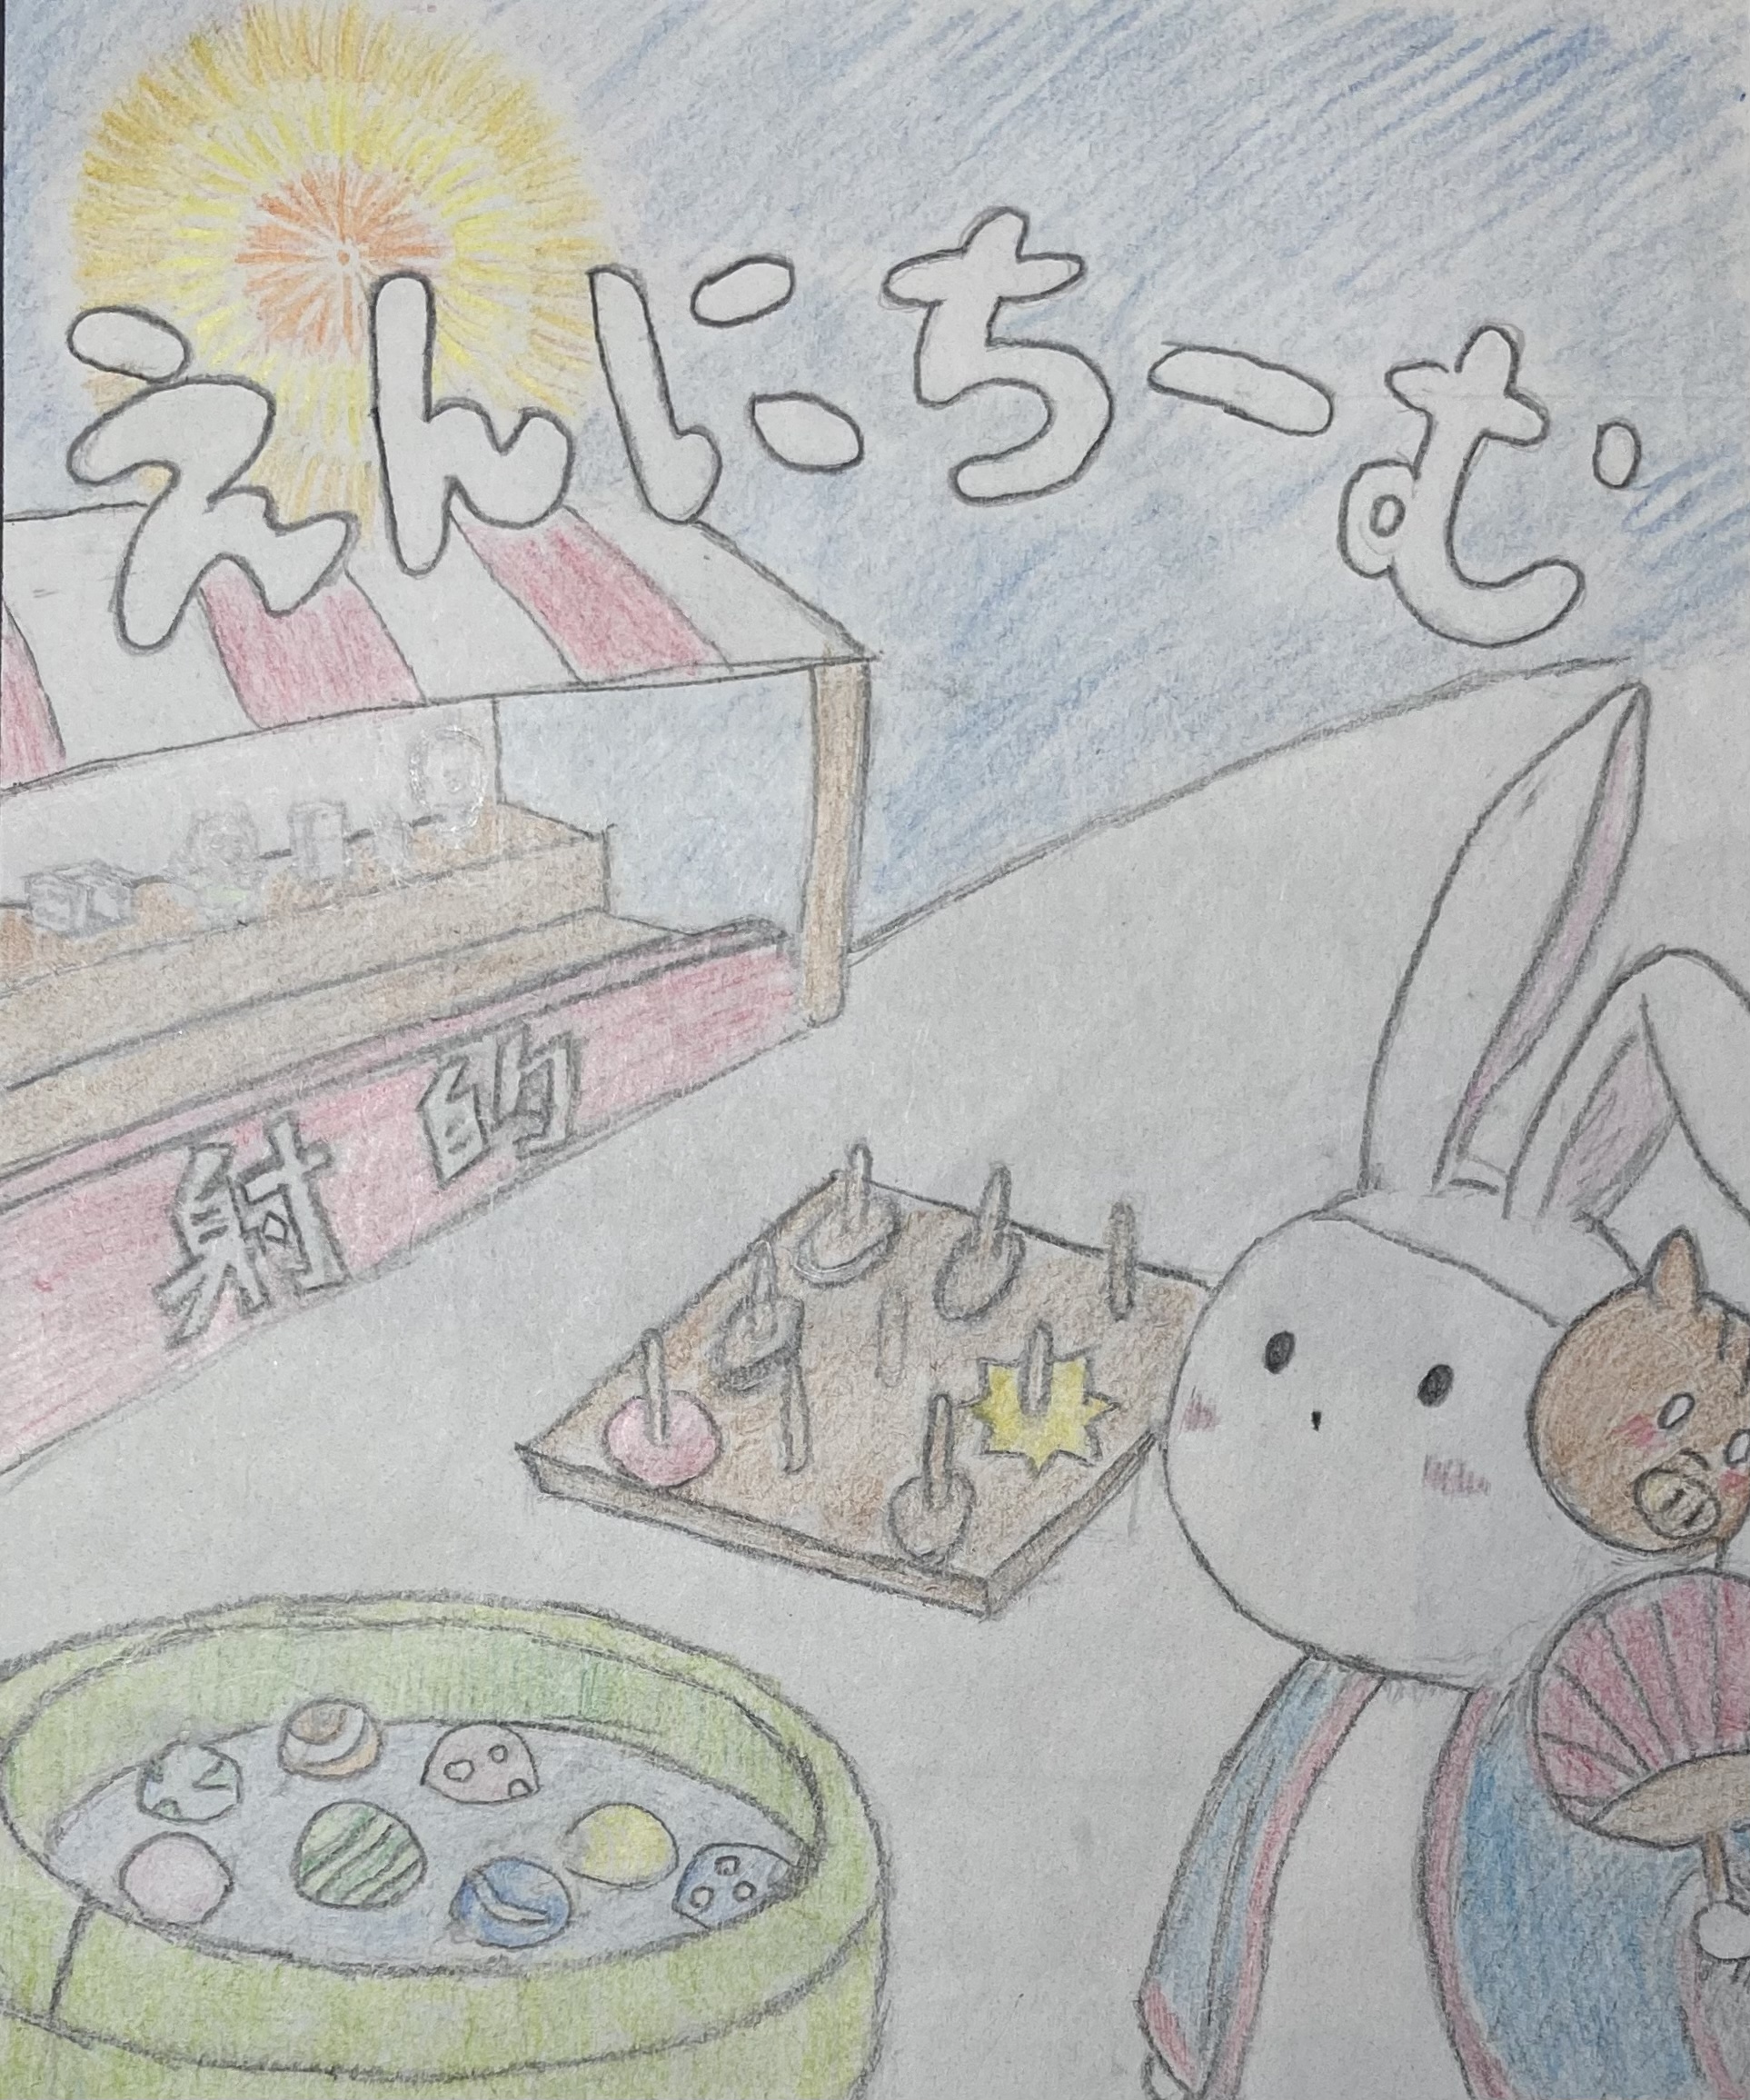 えんにちーむ
射的